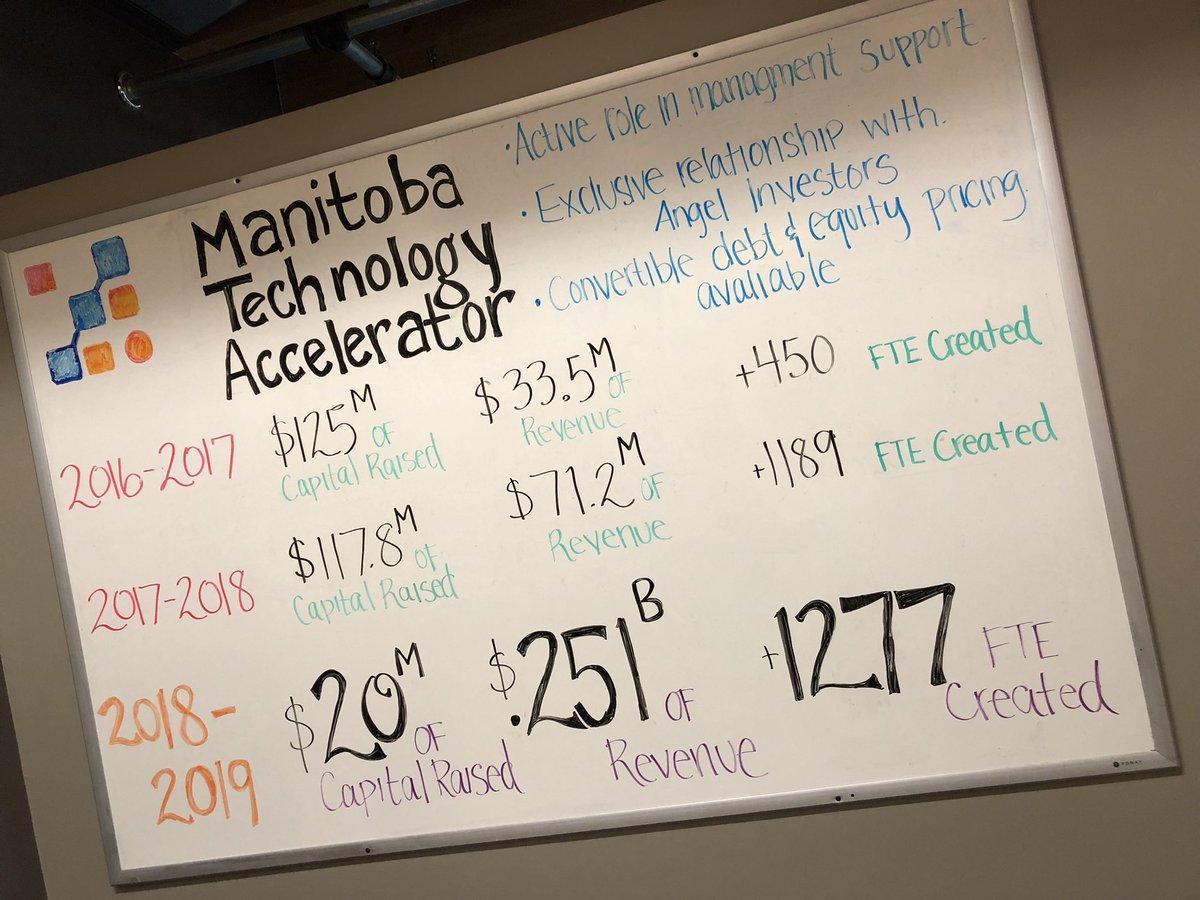 Manitoba
Technology
Accelerator
·Active role in managment support.
·Exclusive relationship with.
Angel Investors
·Convertible debt & equity pricing.
avaliable
2016-2017
$125M OF
Capital Raised
$33.5M OF
Revenue
+450 FTE Created
2017-2018
$117.8M OF
Capital Raised
$71.2M OF
Revenue
+1189 FTE Created
2018-
2019
$20M OF
Capital Raised
$.251B OF
Revenue
+1277 FTE
Created